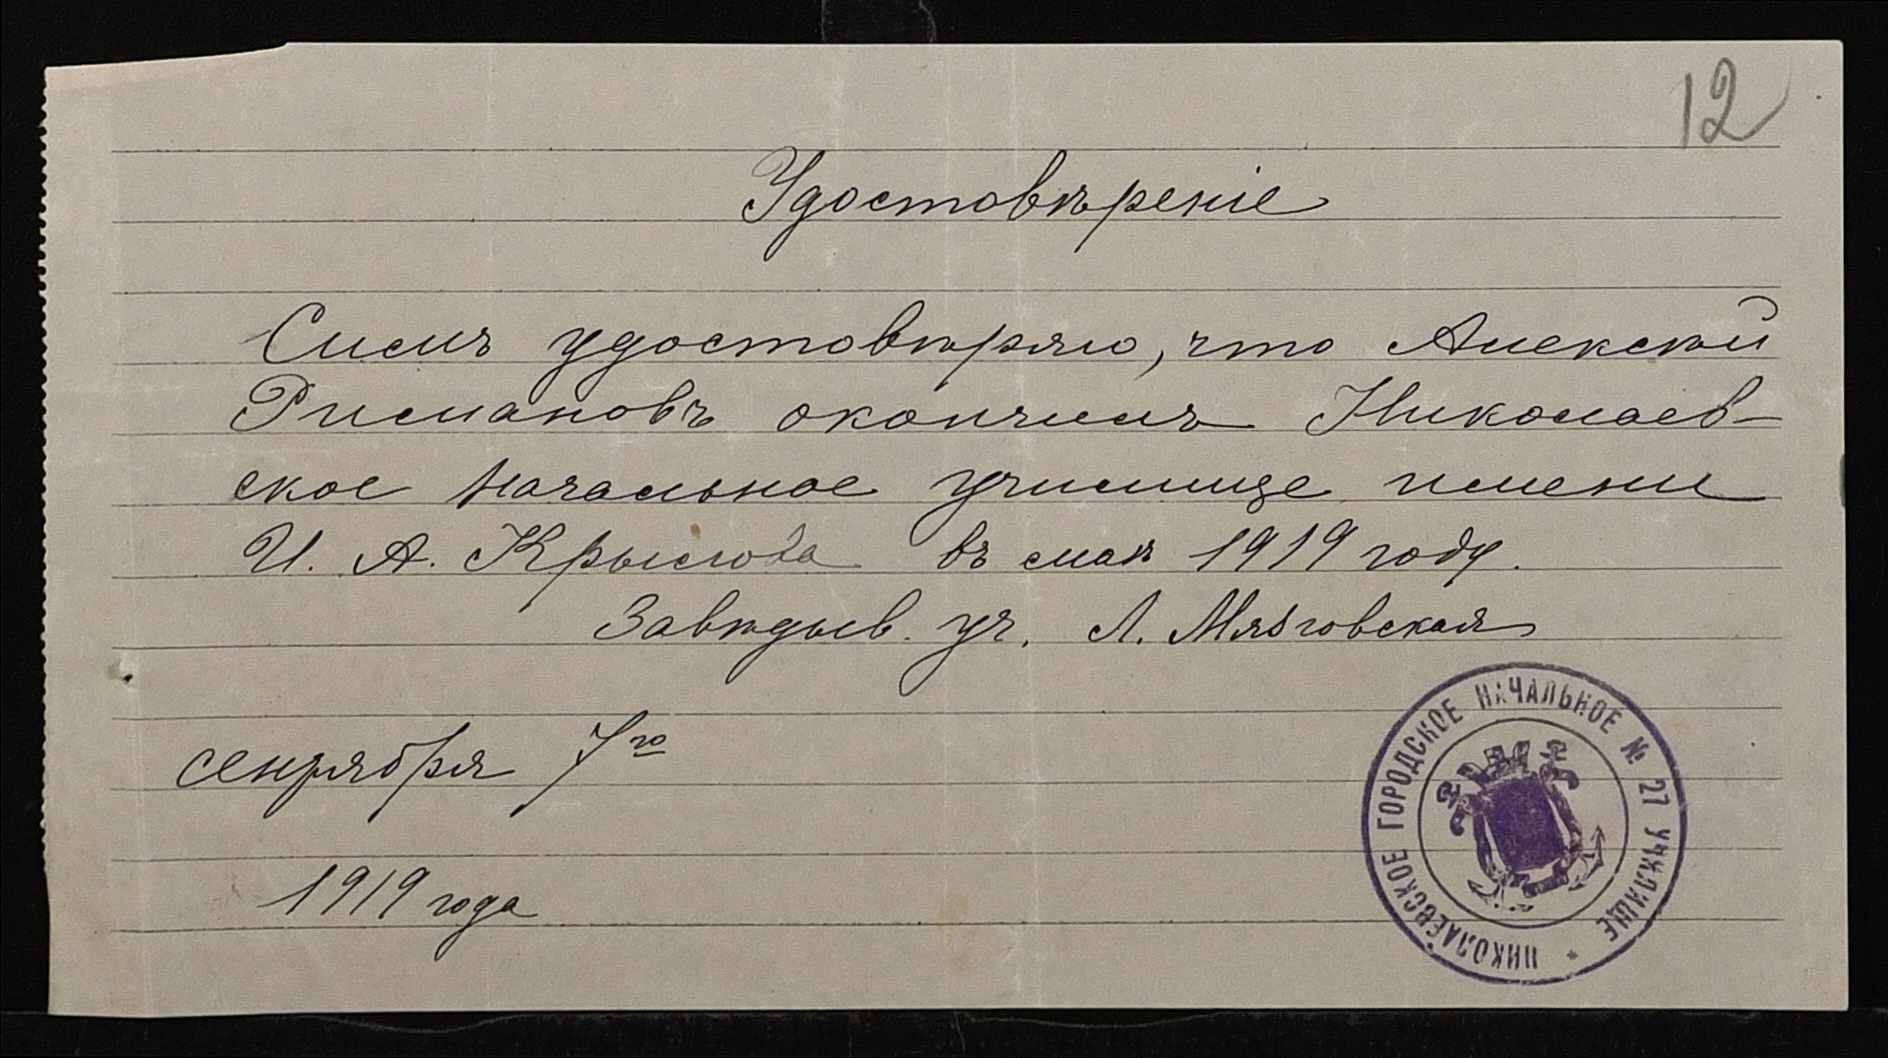 12
Удостовѣреніе
Симъ удостовѣряю, что Алексѣй
Рисмановъ окончилъ Николаев-
ское начальное училище имени
И. А. Крылова въ маѣ 1919 году.
Завѣдыв. уч. Л. Мязговская
сентрября 7го
1919 года
НИКОЛАЕВСКОЕ ГОРОДСКОЕ НАЧАЛЬНОЕ № 27 УЧИЛИЩЕ *